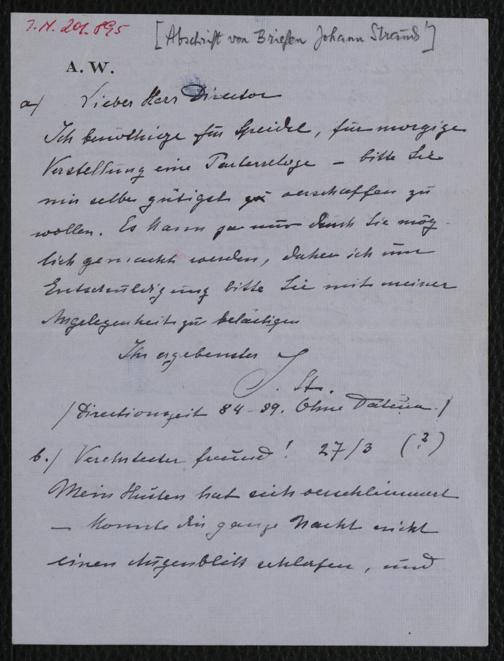 I.N. 201.895
[Abschrift von Briefen Johann Strauß']
A. W.
a/ Lieber Herr Director
Ich benöthige für Speidel, für morgige
Vorstellung eine Parterreloge – bitte Sie
mir selbe gütigst verschaffen zu
wollen. Es kann ja nur durch Sie mög-
lich gemacht werden, daher ich um
Entschuldigung bitte Sie mit meiner
Angelegenheit zu belästigen
Ihr ergebenster
J. St.
/Directionszeit 84–89. Ohne Datum./
b./ Verehrtester Freund! 27/3 (?)
Mein Husten hat sich verschlimmert
– konnte die ganze Nacht nicht
einen Augenblick schlafen, und